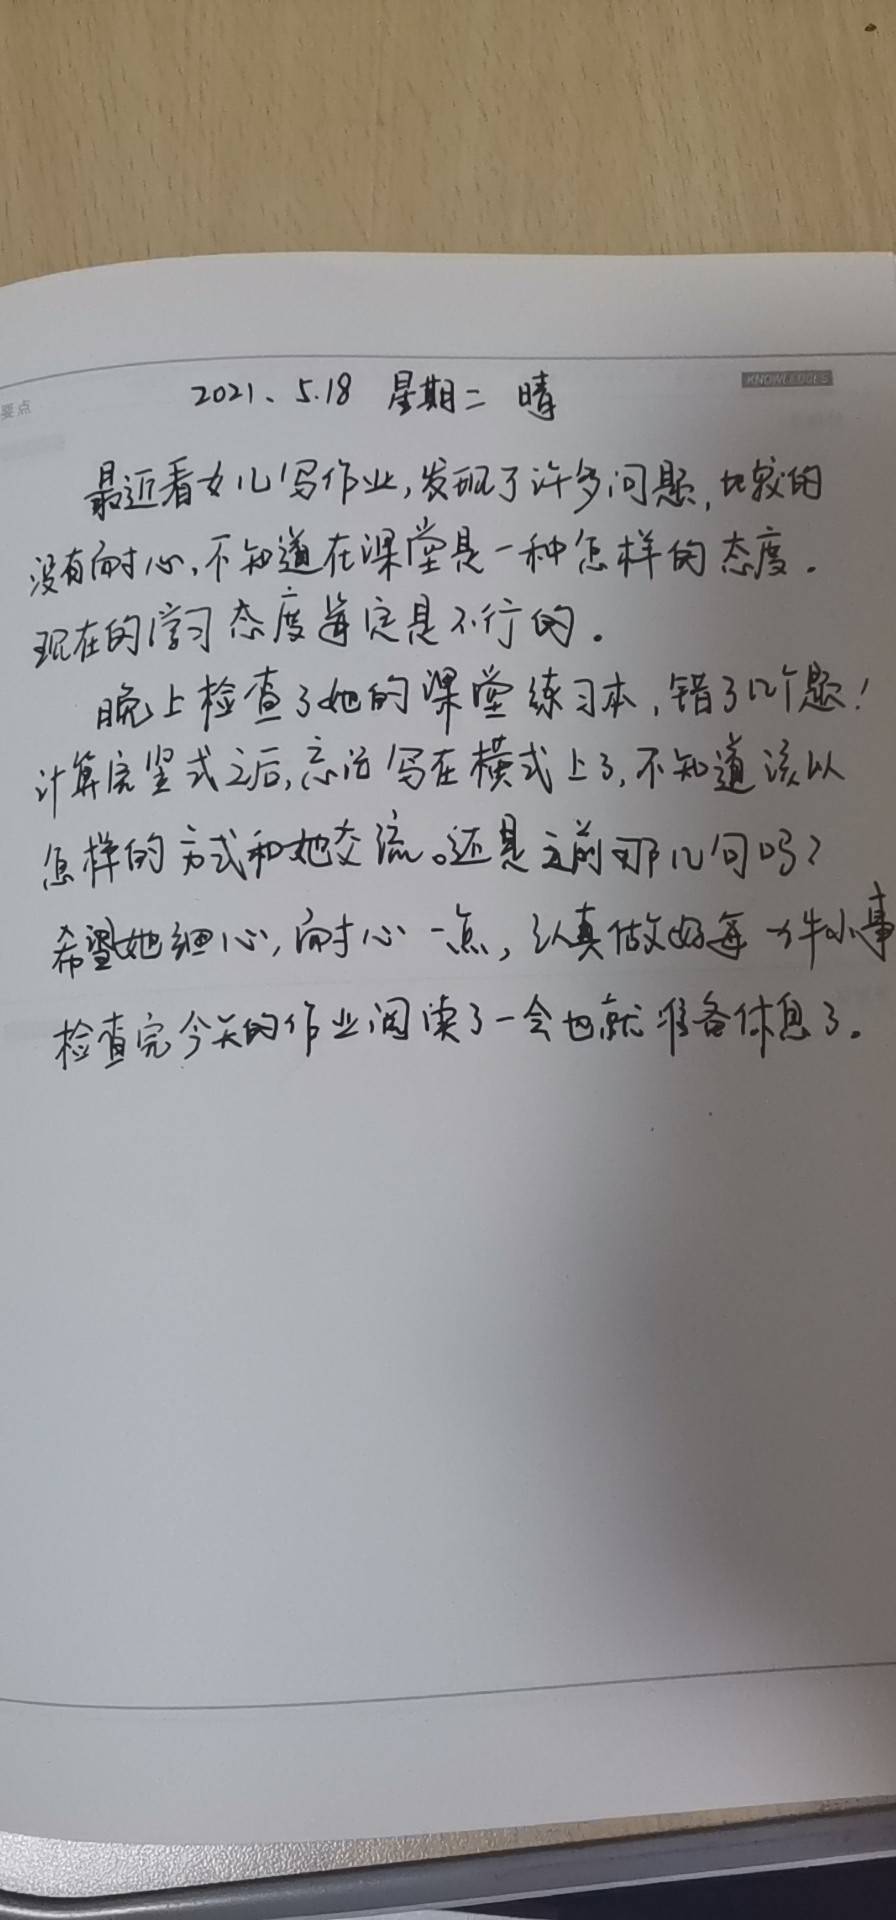 要点
KNOWLEDGES
2021、5.18 星期二 晴
最近看女儿写作业,发现了许多问题,比较的
没有耐心,不知道在课堂是一种怎样的态度.
现在的学习态度肯定是不行的.
晚上检查了她的课堂练习本,错了几个题!
计算完竖式之后,忘记写在横式上了,不知道该以
怎样的方式和她交流。还是之前那几句吗?
希望她细心,耐心一点,认真做好每一件小事
检查完今天的作业阅读了一会也就准备休息了.